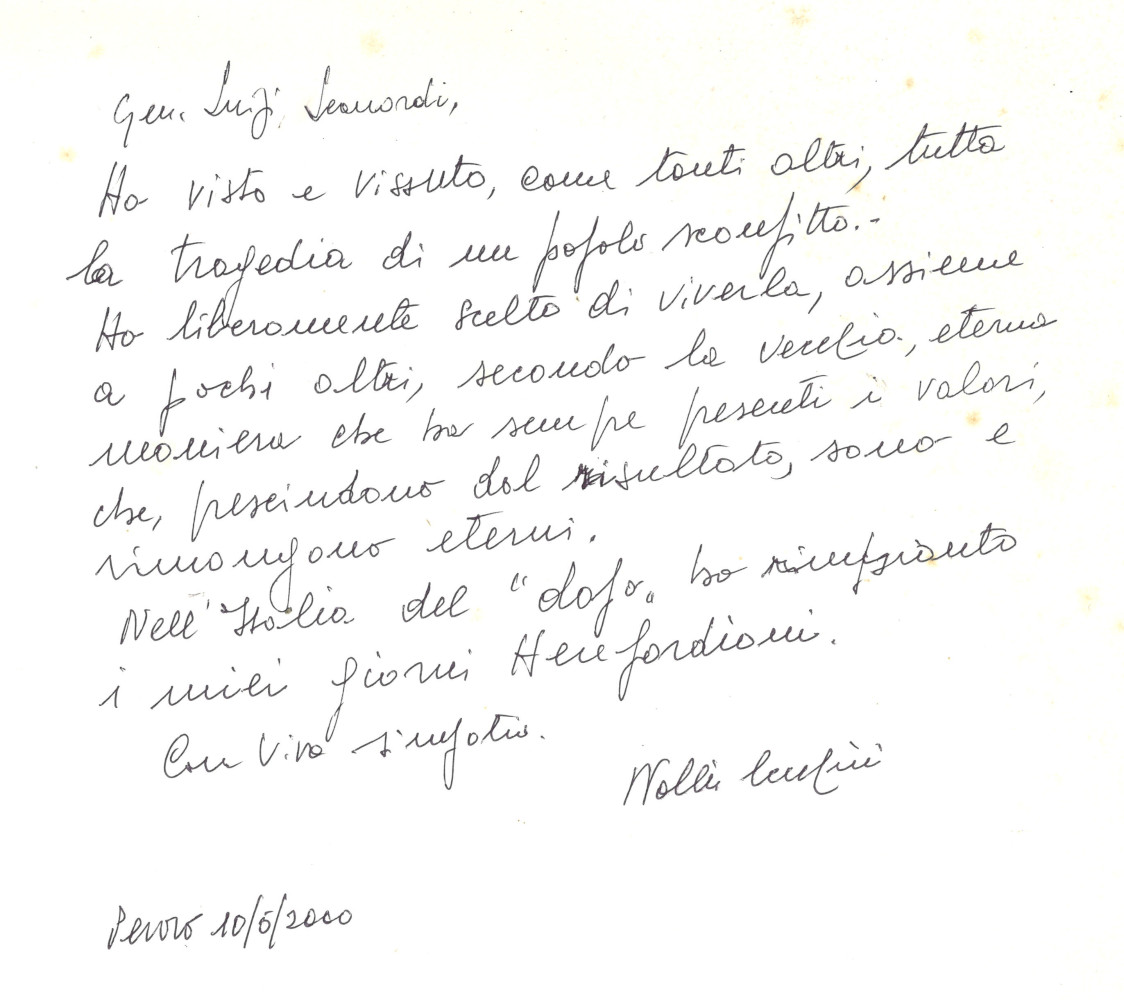 Gen. Luigi Leonardi,
Ho visto e vissuto, come tanti altri, tutta
la tragedia di un popolo sconfitto.-
Ho liberamente scelto di viverla, assieme
a pochi altri, secondo la vecchia, eterna
maniera che ha sempre presenti i valori,
che, prescindono dal risultato, sono e
rimangono eterni.
Nell'Italia del "dopo" ho rimpianto
i miei giorni Herefordiani.
Con viva simpatia.
10/5/2000